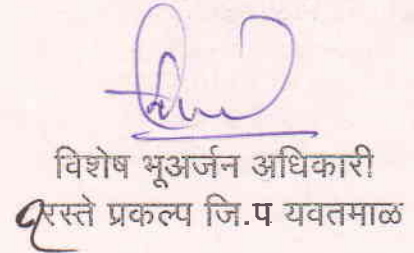 विशेष भूअर्जन अधिकारी
रस्ते प्रकल्प जि.प यवतमाळ